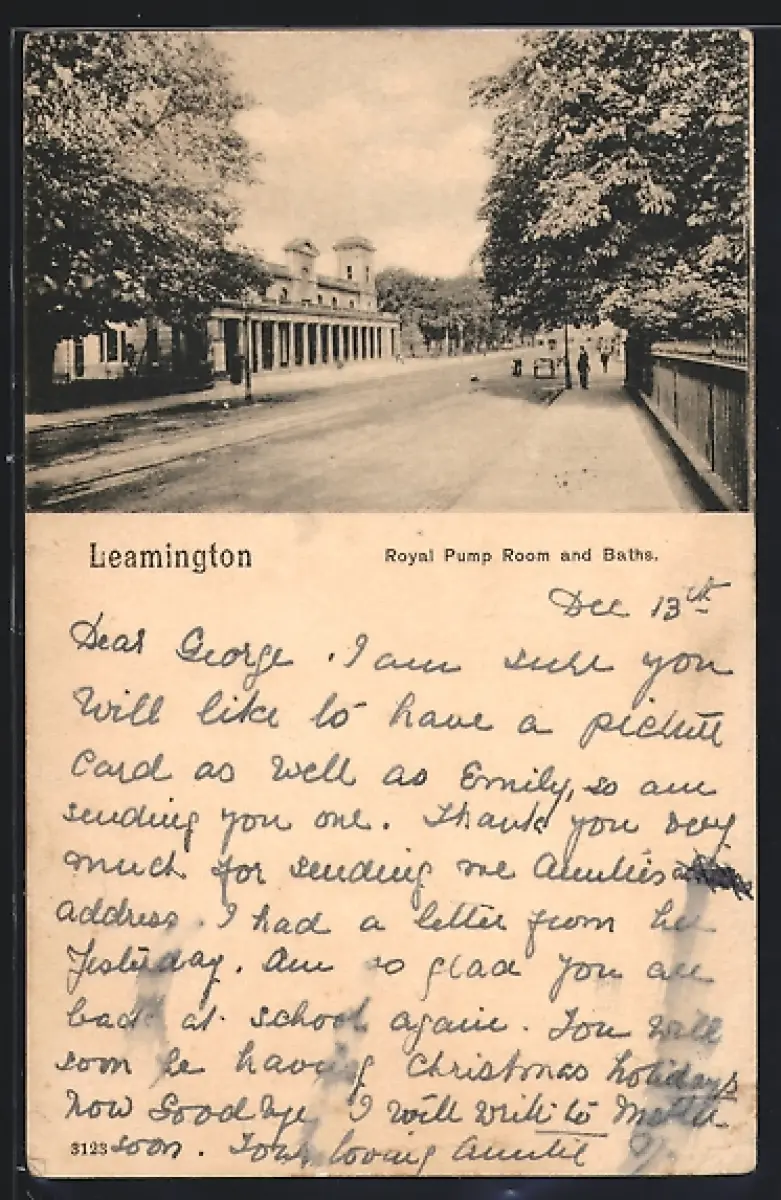 Leamington Royal Pump Room and Baths.
Dec 13th
Dear George. I am sure you
will like to have a picture
card as well as Emily, so am
sending you one. Thank you very
much for sending me Aunties
address. I had a letter from her
Yesterday. Am so glad you are
back at school again. You will
soon be having Christmas holidays
now Goodbye I will write to Mother
3123 soon. Your loving Auntie